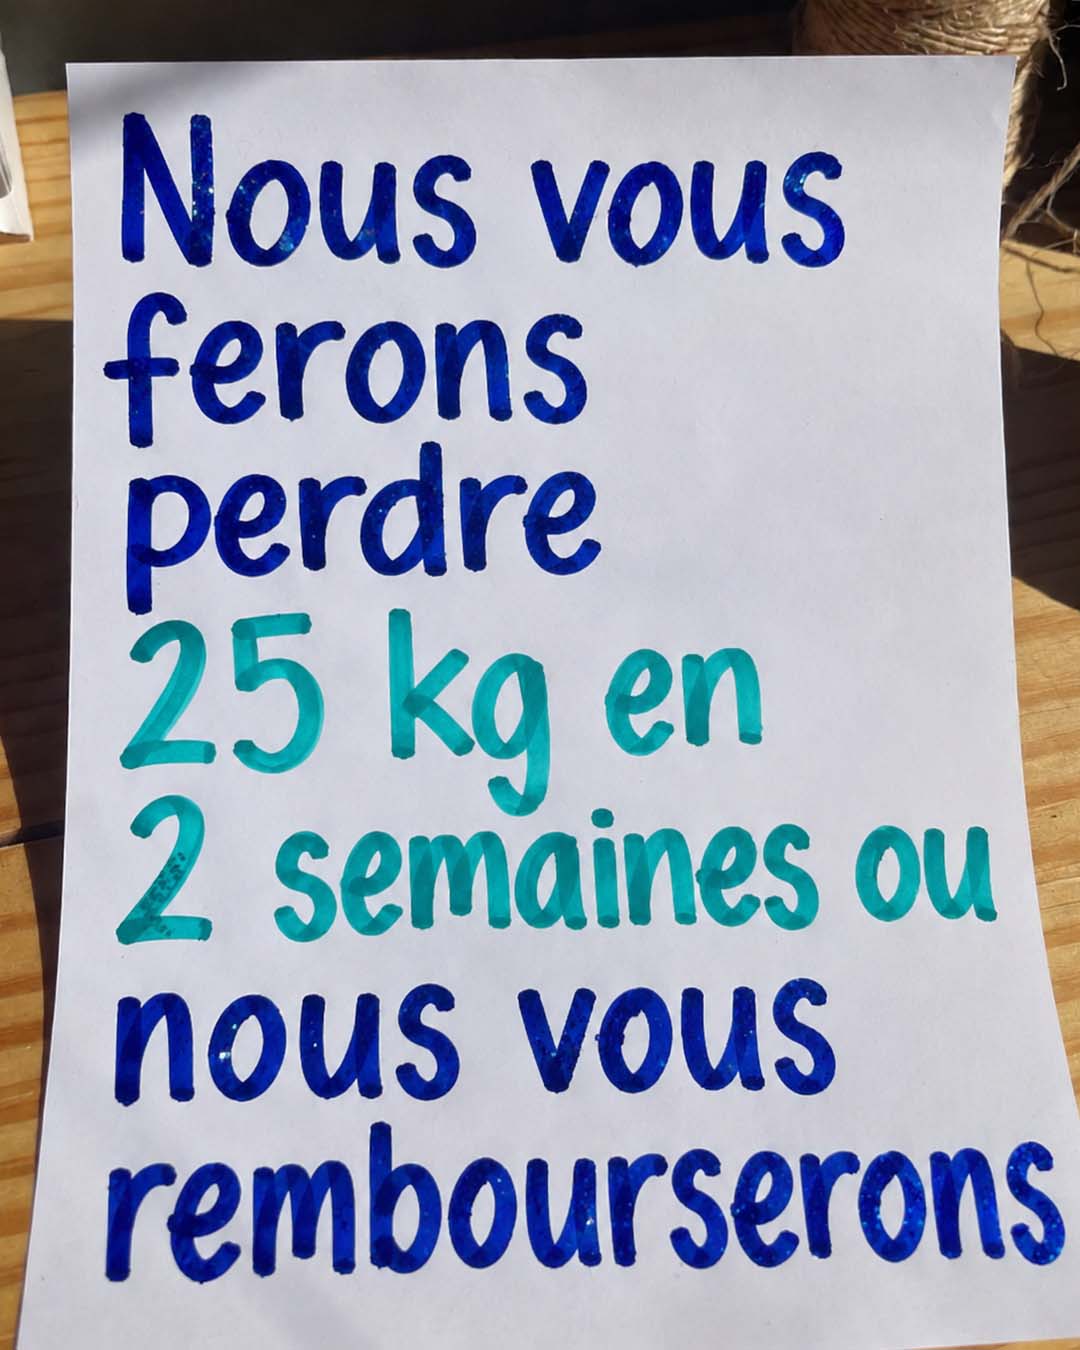 Nous vous
ferons
perdre
25 kg en
2 semaines ou
nous vous
rembourserons